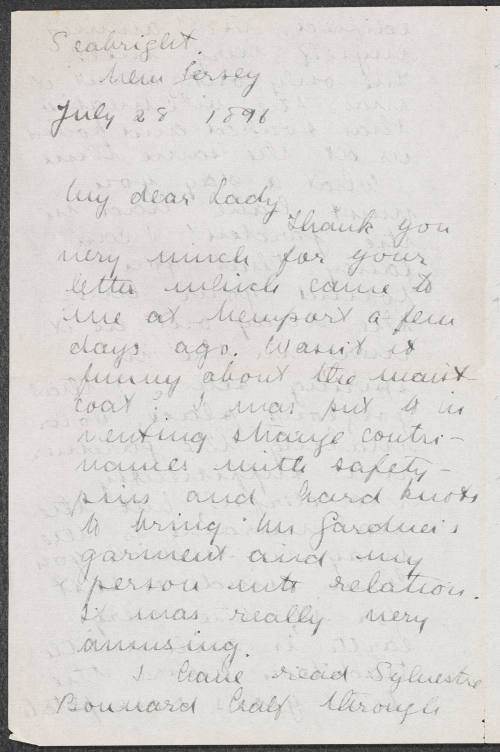 Seabright.
New Jersey
July 28 1896
My dear Lady
Thank you
very much for your
letter which came to
me at Newport a few
days ago. Wasn't it
funny about the waist-
coat? I was put to in
venting strange contri-
vances with safety-
pins and hard knots
to bring Mr Gardner's
garment and my
person into relation.
It was really very
amusing.
I have read Sylvestre
Bonnard half through